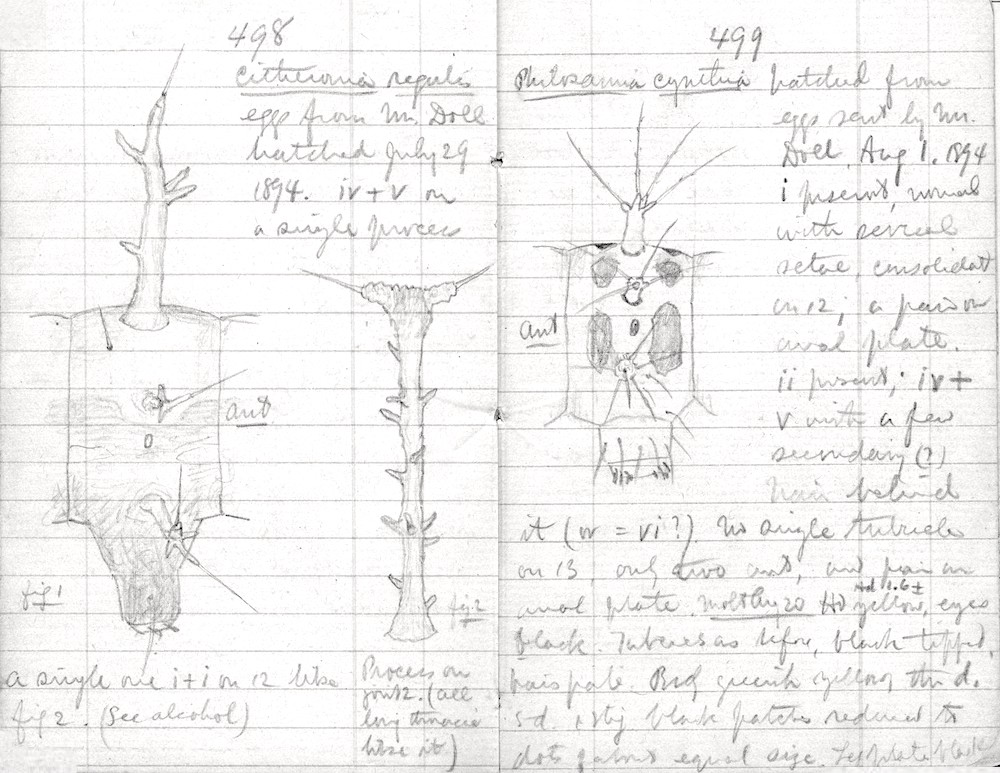 498
Citheronia regalis
eggs from Mr. Doll
hatched July 29
1894. iv + v on
a single process
ant
fig 1
fig 2
a single one i + i on 12 like
fig 2. (See alcohol)
Process on
joint 2. (all
long thoracic
like it)
499
Philosamia cynthia hatched from
eggs sent by Mr.
Doll, Aug 1. 1894
i present, normal
with several
setae, consolidat
on 12, a pair on
anal plate.
ii present; iv +
v with a few
secondary (?)
hair behind
it (or = vi?) No single tubercle
on 13, only two ant, and pair on
anal plate. Molt Aug 20 Hd yellow, eyes
Hd 1.6±
black. Tubercles as before, black tipped,
hairs pale. Body greenish yellow,
black patches reduced to
dots about equal size. plate black
ant